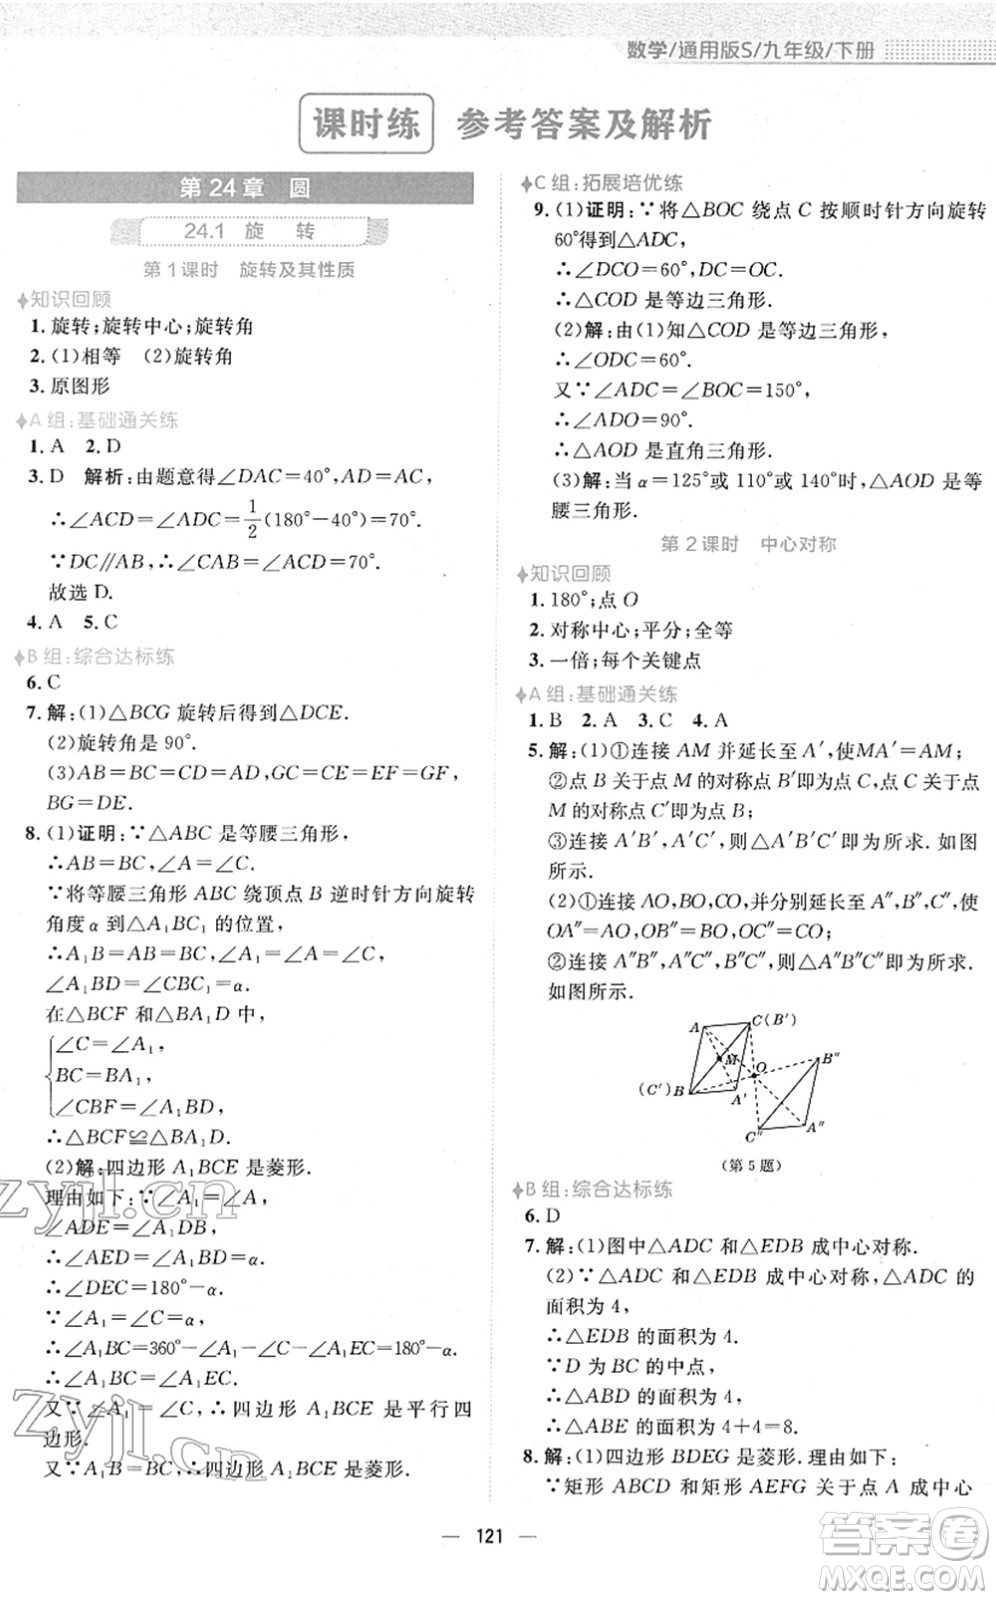 数学/通用版S/九年级/下册
课时练 参考答案及解析
第24章 圆
24.1 旋 转
第1课时 旋转及其性质
知识回顾
1.旋转;旋转中心;旋转角
2.(1)相等 (2)旋转角
3.原图形
A组:基础通关练
1.A 2.D
3.D 解析:由题意得∠DAC=40°,AD=AC,
∴∠ACD=∠ADC=1/2(180°-40°)=70°.
∵DC∥AB,∴∠CAB=∠ACD=70°.
故选D.
4.A 5.C
B组:综合达标练
6.C
7.解:(1)△BCG旋转后得到△DCE.
(2)旋转角是90°.
(3)AB=BC=CD=AD,GC=CE=EF=GF,
BG=DE.
8.(1)证明:∵△ABC是等腰三角形,
∴AB=BC,∠A=∠C.
∵将等腰三角形ABC绕顶点B逆时针方向旋转
角度α到△A₁BC₁的位置,
∴A₁B=AB=BC,∠A₁=∠A=∠C,
∠A₁BD=∠CBC₁=α.
在△BCF和△BA₁D中,
∠C=∠A₁,
BC=BA₁,
∠CBF=∠A₁BD,
∴△BCF≌△BA₁D.
(2)解:四边形A₁BCE是菱形.
理由如下:∵∠A₁=∠A,
∠ADE=∠A₁DB,
∴∠AED=∠A₁BD=α.
∴∠DEC=180°-α.
∵∠A₁=∠C=α,
∴∠A₁BC=360°-∠A₁-∠C-∠A₁EC=180°-α.
∴∠A₁BC=∠A₁EC.
又∵∠A₁=∠C,∴四边形A₁BCE是平行四
边形.
又∵A₁B=BC,∴四边形A₁BCE是菱形.
C组:拓展培优练
9.(1)证明:∵将△BOC绕点C按顺时针方向旋转
60°得到△ADC,
∴∠DCO=60°,DC=OC.
∴△COD是等边三角形.
(2)解:由(1)知△COD是等边三角形,
∴∠ODC=60°.
又∵∠ADC=∠BOC=150°,
∴∠ADO=90°.
∴△AOD是直角三角形.
(3)解:当α=125°或110°或140°时,△AOD是等
腰三角形.
第2课时 中心对称
知识回顾
1.180°;点O
2.对称中心;平分;全等
3.一倍;每个关键点
A组:基础通关练
1.B 2.A 3.C 4.A
5.解:(1)①连接AM并延长至A′,使MA′=AM;
②点B关于点M的对称点B′即为点C,点C关于点
M的对称点C′即为点B;
③连接A′B′,A′C′,则△A′B′C′即为所求.如图
所示.
(2)①连接AO,BO,CO,并分别延长至A″,B″,C″,使
OA″=AO,OB″=BO,OC″=CO;
②连接A″B″,A″C″,B″C″,则△A″B″C″即为所求.
如图所示.
A C(B′)
M O B″
(C′)B A′
C″ A″
(第5题)
B组:综合达标练
6.D
7.解:(1)图中△ADC和△EDB成中心对称.
(2)∵△ADC和△EDB成中心对称,△ADC的
面积为4,
∴△EDB的面积为4.
∵D为BC的中点,
∴△ABD的面积为4.
∴△ABE的面积为4+4=8.
8.解:(1)四边形BDEG是菱形.理由如下:
∵矩形ABCD和矩形AEFG关于点A成中心
— 121 —
zyjl.cn
zyjl.cn
答案卷
MXQE.COM